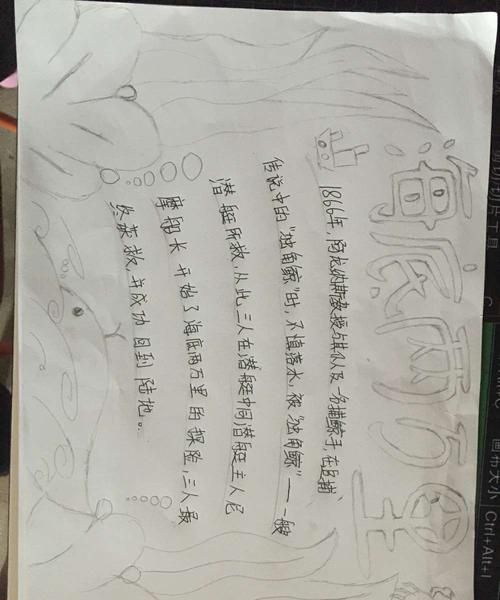 海底两万里
1866年，阿龙纳斯教授与其仆从及一名捕鲸手，在追捕
传说中的“独角鲸”时，不慎落水，被“独角鲸”——一艘
潜艇所救，从此三人在潜艇中同潜艇主人尼
摩船长 开始了海底两万里的探险，三人最
终获救，并成功回到陆地。
画布大小
Ctrl+Alt+I